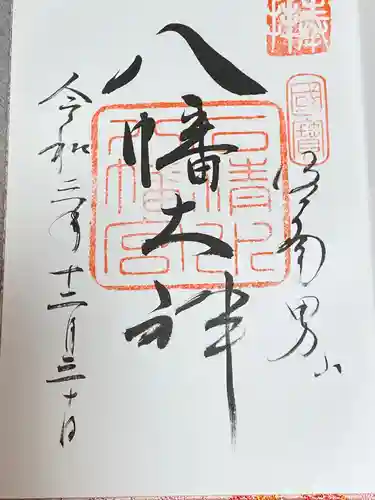 奉拝
國寶
男山
八幡大神
石清水
八幡宮
令和三年十二月三十日